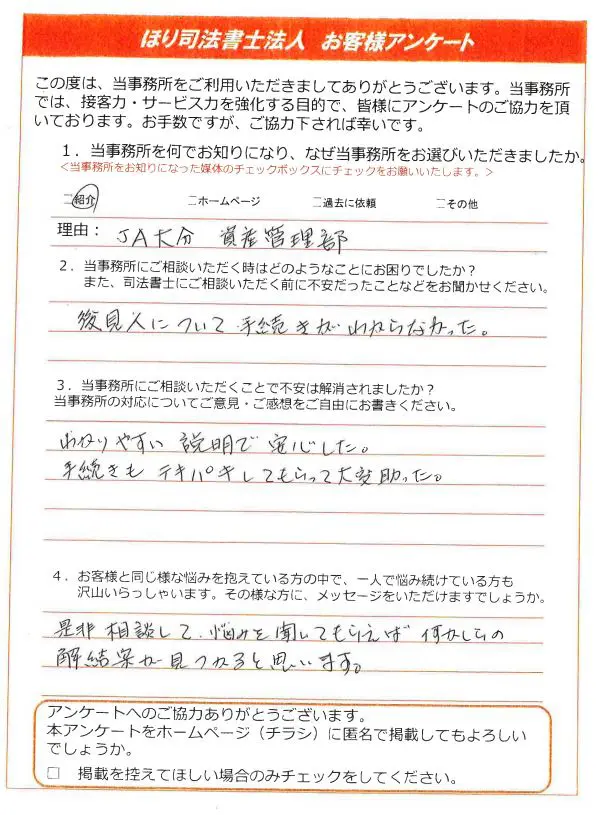 ほり司法書士法人 お客様アンケート
この度は、当事務所をご利用いただきましてありがとうございます。当事務所
では、接客力・サービス力を強化する目的で、皆様にアンケートのご協力を頂
いております。お手数ですが、ご協力下されば幸いです。
1．当事務所を何でお知りになり、なぜ当事務所をお選びいただきましたか。
＜当事務所をお知りになった媒体のチェックボックスにチェックをお願いいたします。＞
□紹介 □ホームページ □過去に依頼 □その他
理由： JA大分 資産管理部
2．当事務所にご相談いただく時はどのようなことにお困りでしたか？
また、司法書士にご相談いただく前に不安だったことなどをお聞かせください。
後見人について手続きがわからなかった。
3．当事務所にご相談いただくことで不安は解消されましたか？
当事務所の対応についてご意見・ご感想をご自由にお書きください。
わかりやすい説明で安心した。
手続きもテキパキしてもらって大変助った。
4．お客様と同じ様な悩みを抱えている方の中で、一人で悩み続けている方も
沢山いらっしゃいます。その様な方に、メッセージをいただけますでしょうか。
是非相談して、悩みを聞いてもらえば何かしらの
解結策が見つかると思います。
アンケートへのご協力ありがとうございます。
本アンケートをホームページ（チラシ）に匿名で掲載してもよろしい
でしょうか。
□ 掲載を控えてほしい場合のみチェックをしてください。